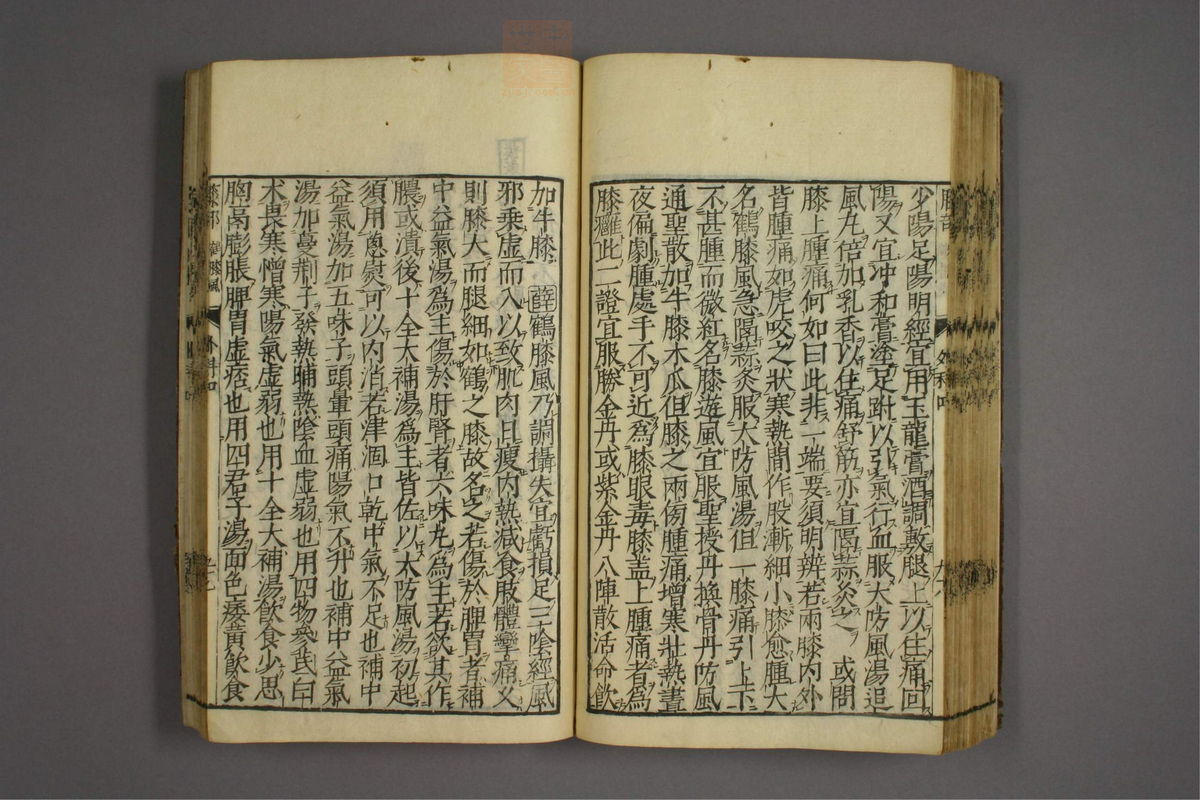 少陽足陽明經宜用玉龍膏酒調敷腿上以住痛回
陽又宜冲和膏塗足趾以引氣行血服大防風湯追
風丸倍加乳香以住痛舒筋亦宜隔蒜灸之　或問
膝上腫痛何如曰此非一端要須明辨若兩膝内外
皆腫痛如虎咬之狀寒熱間作股漸細小膝愈腫大
名鶴膝風急隔蒜灸服大防風湯但一膝痛引上下
不甚腫而微紅名膝遊風宜服聖授丹換骨丹防風
通聖散加牛膝木瓜但膝之兩傍腫痛增寒壯熱晝
夜偏劇腫處手不可近爲膝眼毒膝盖上腫痛者爲
膝癰此二證宜服勝金丹或紫金丹八陣散活命飲
加牛膝　薛鶴膝風乃調攝失宜虧損足三陰經風
邪乗虚而入以致肌肉日瘦内熱減食肢體攣痛又
則膝大而腿細如鶴之膝故名之若傷於脾胃者補
中益氣湯爲主傷於肝腎者六味丸爲主若欲其作
膿或潰後十全大補湯爲主皆佐以大防風湯初起
須用葱熨可以内消若津涸口乾中氣不足也補中
益氣湯加五味子頭暈頭痛陽氣不升也補中益氣
湯加蔓荆子發熱晡熱陰血虚弱也用四物參芪白
术畏寒憎寒陽氣虚弱也用十全大補湯飲食少思
胸鬲膨脹脾胃虚痞也用四君子湯面色痿黄飲食
膝部　鶴膝風　外科四